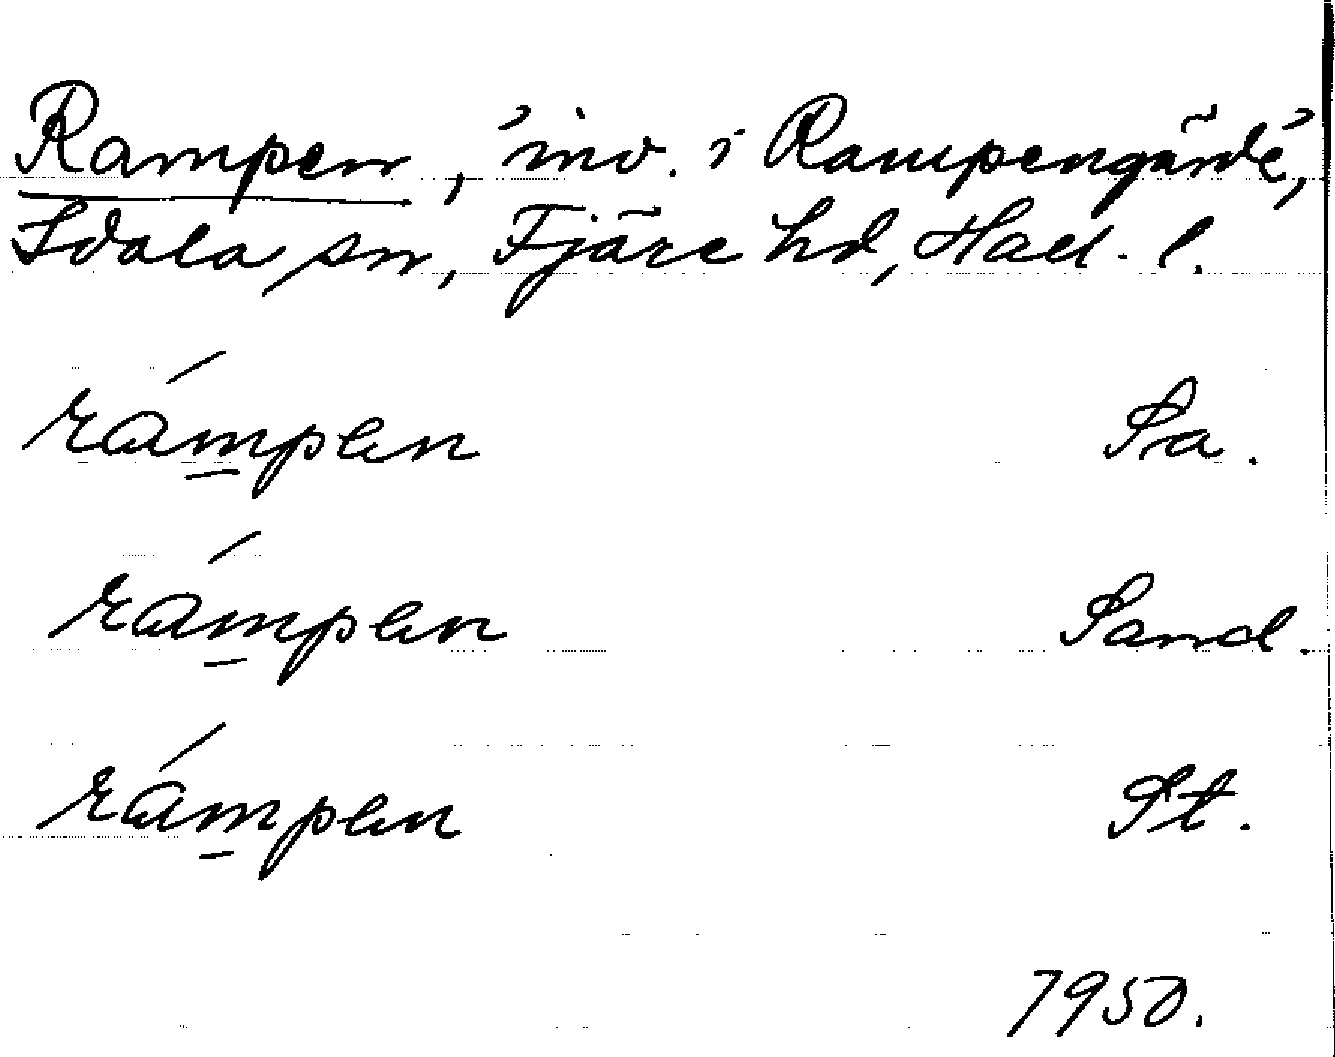 Rampen, 'inv. i Rampengärde',
Idala sn, Fjäre hd, Hall. l.
rámpen Sa.
rámpen Sand.
rámpen St.
1950.